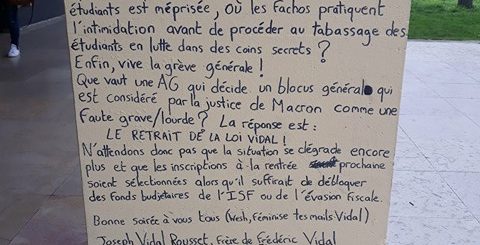 étudiants est méprisée, où les fachos pratiquent
l'intimidation avant de procéder au tabassage des
étudiants en lutte dans des coins secrets ?
Enfin, vive la grève générale !
Que vaut une AG qui décide un blocus général qui
est considéré par la justice de Macron comme une
faute grave/lourde ? La réponse est :
LE RETRAIT DE LA LOI VIDAL !
N'attendons donc pas que la situation se dégrade encore
plus et que les inscriptions à la rentrée prochaine
soient sélectionnées alors qu'il suffirait de débloquer
des fonds budgétaires de l'ISF ou de l'évasion fiscale.
Bonne soirée à vous tous (wesh, féminise tes mails Vidal)
Joseph Vidal Rousset, frère de Frédéric Vidal